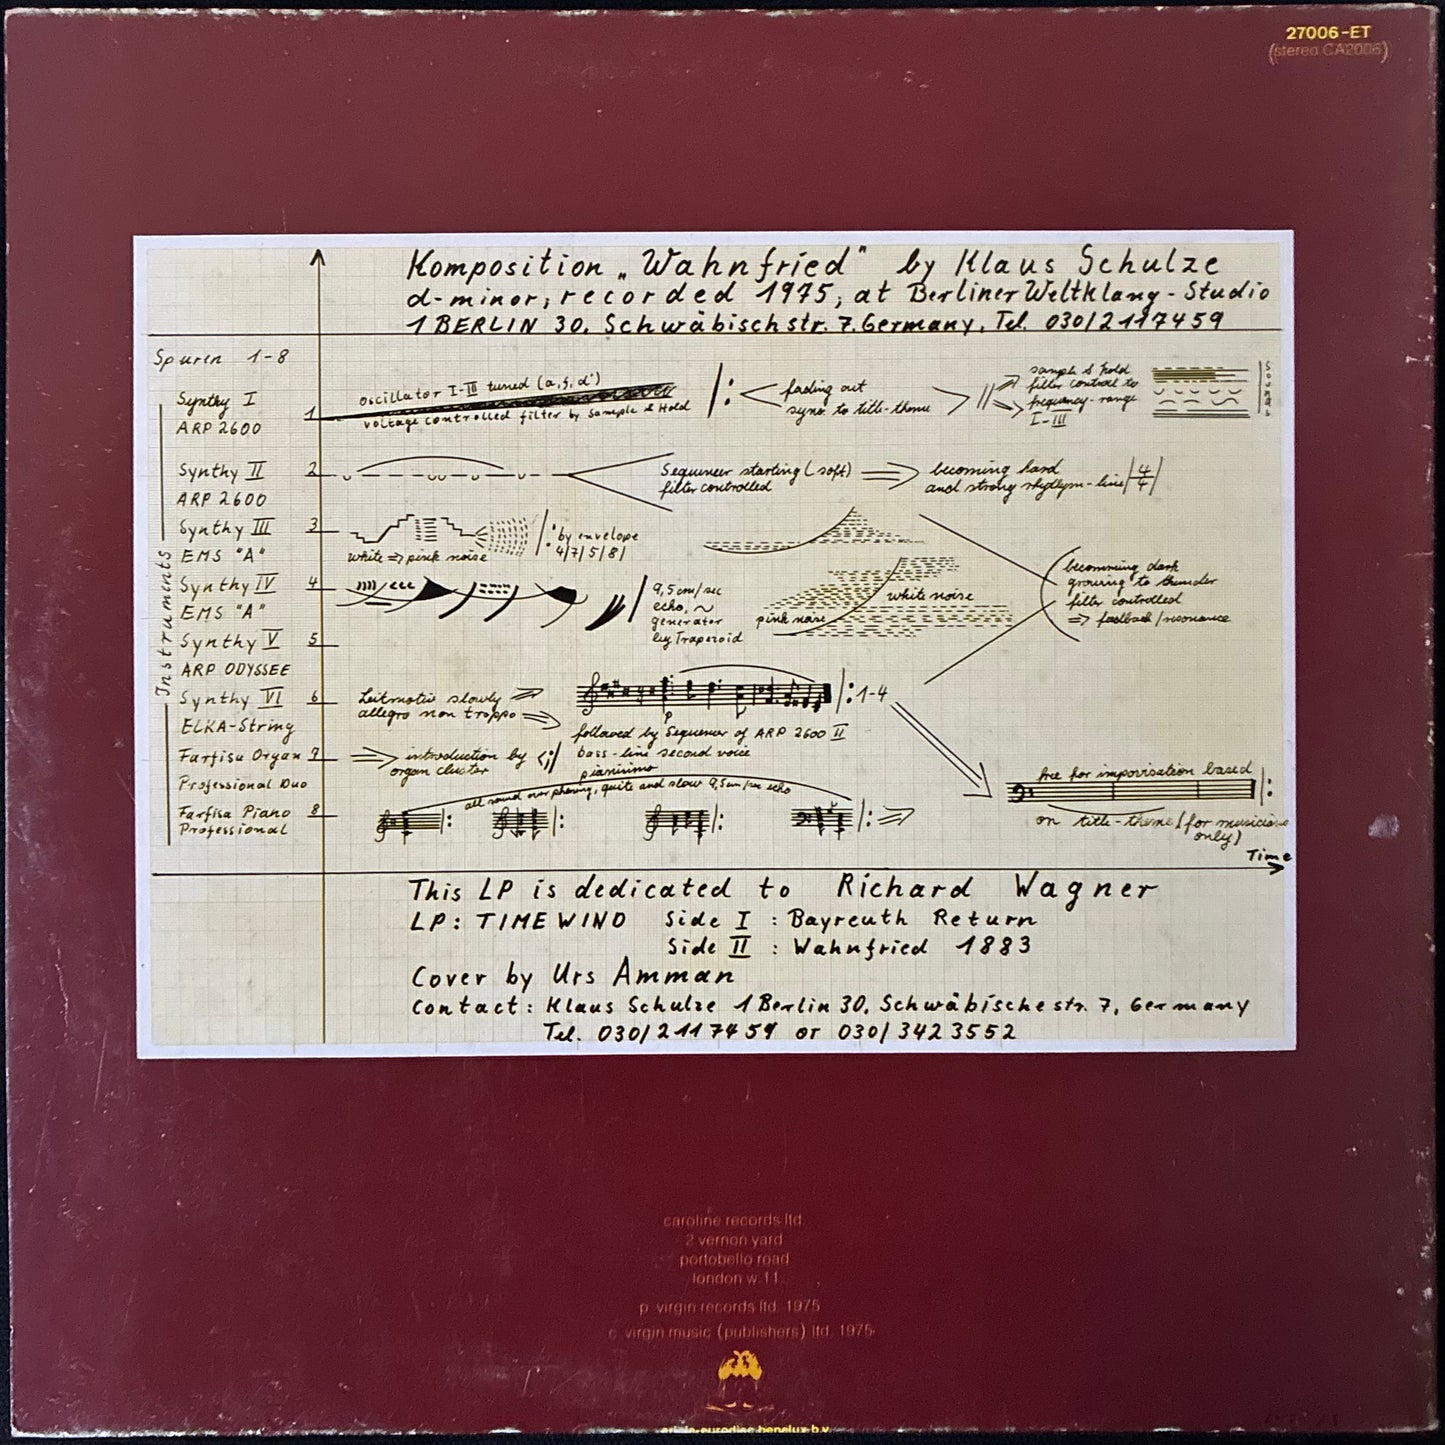 27006-ET
(stereo CA2006)
Komposition „Wahnfried" by Klaus Schulze
d-minor, recorded 1975, at Berliner Weltklang-Studio
1 BERLIN 30, Schwäbischstr. 7, Germany, Tel. 030/2117459
Spuren 1-8
Instruments
Synthy I
1
ARP 2600
oscillator I-III tuned (a, f, d')
voltage controlled filter by Sample & Hold
fading out
sync. to title-theme
sample & hold
filter control to
frequency-range
I-III
Sounds
Synthy II
2
ARP 2600
Sequencer starting (soft)
filter controlled
becoming hard
and strong rhythm-line 4/4
Synthy III
3
EMS "A"
white ⇒ pink noise
by envelope
4/7/5/8/
Synthy IV
4
EMS "A"
9,5cm/sec
echo, ~
generator
by Trapezoid
white noise
pink noise
becomming dark
growing to thunder
filter controlled
⇒ feedback/resonance
Synthy V
5
ARP ODYSSEE
Synthy VI
6
ELKA-String
Leitmotiv slowly
allegro non troppo
p
1-4
followed by Sequencer of ARP 2600 II
bass-line second voice
pianissimo
Farfisa Organ
7
Professional Duo
introduction by
organ cluster
all sound over phasing, quite and slow 9,5cm/sec echo
Farfisa Piano
8
Professional
free for improvisation based
on title-theme! (for musicians
only)
Time
This LP is dedicated to Richard Wagner
LP: TIMEWIND Side I : Bayreuth Return
Side II : Wahnfried 1883
Cover by Urs Amman
Contact: Klaus Schulze 1 Berlin 30, Schwäbische str. 7, Germany
Tel. 030/2117459 or 030/3423552
caroline records ltd.
2 vernon yard
portobello road
london w.11.
p. virgin records ltd. 1975
c. virgin music (publishers) ltd. 1975
ariola-eurodisc benelux b.v.